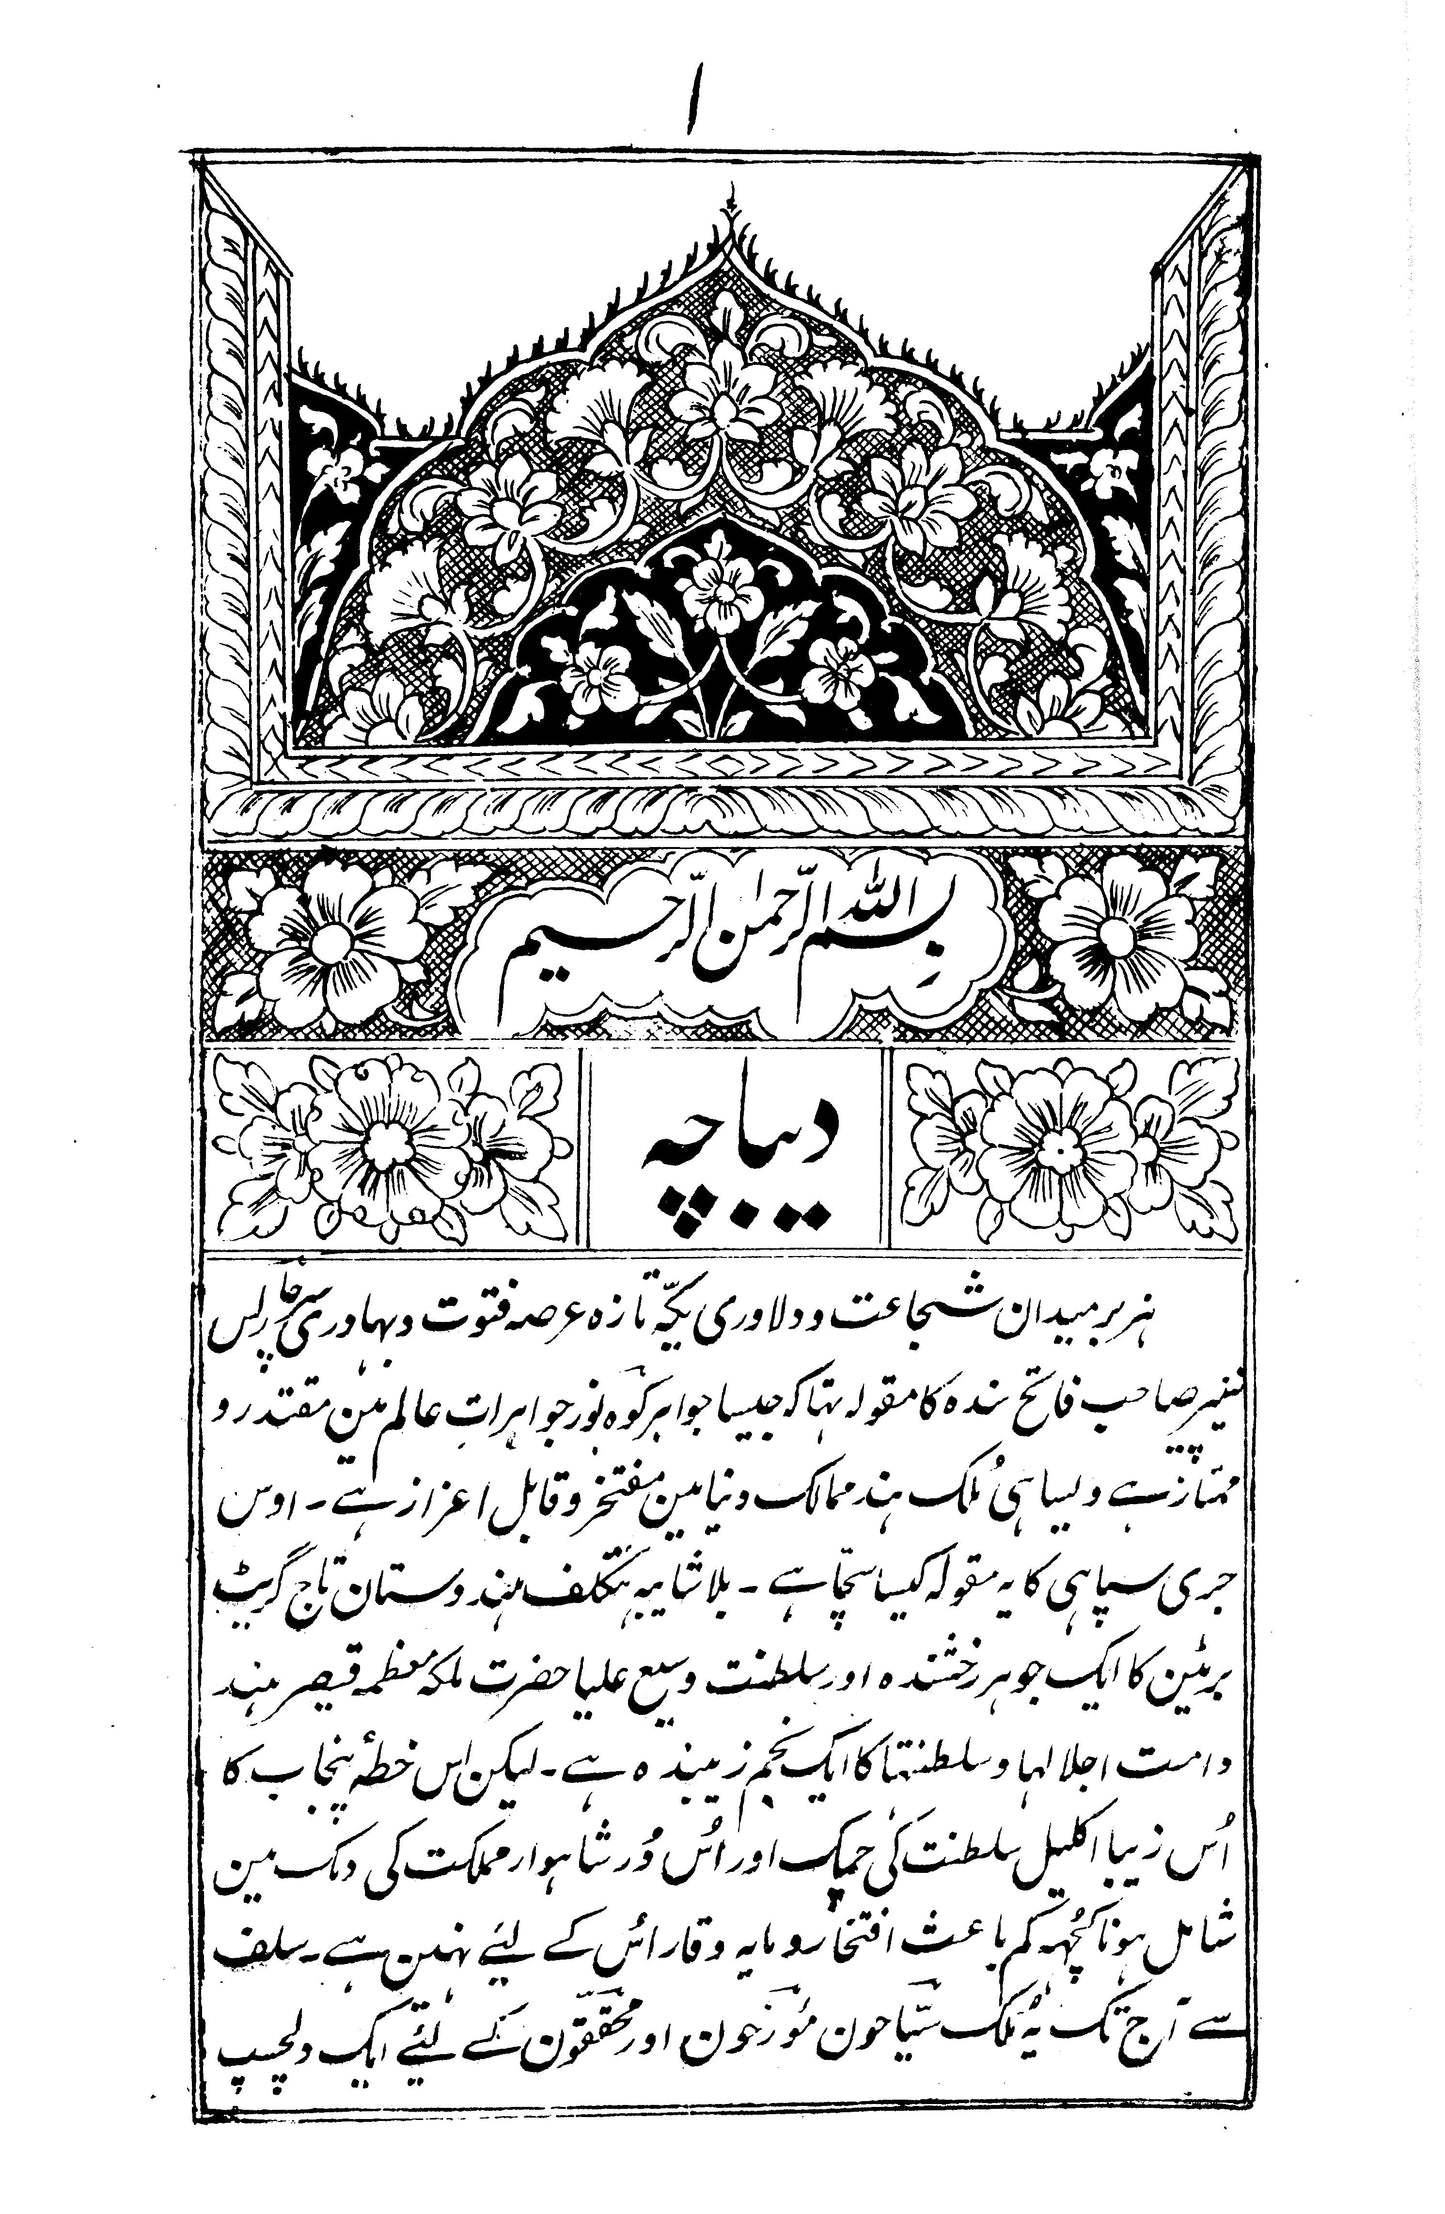 ۱
بِسم الله الرّحمٰن الرّحیم
دیباچہ
ہزبر میدان شجاعت و دلاوری یکّہ تازہ عرصہ فتوت و بہادری سرچارلس
نیپیر صاحب فاتح سندہ کا مقولہ تہا کہ جیسا جواہر کوہ نور جواہرات عالم مین مقتدر و
ممتاز ہے ویسا ہی مُلک ہند ممالک دنیا مین مفتخر و قابل اعزاز ہے ۔ اوس
جری سپاہی کا یہ مقولہ کیسا سچّا ہے ۔ بلا شایبہ تکلف ہندوستان تاج گریٹ
برٹین کا ایک جوہر رخشندہ اور سلطنت وسیع علیا حضرت ملکہ معظمہ قیصر ہند
دامت اجلالہا و سلطنتہا کا ایک نجم زیبندہ ہے ۔ لیکن اس خطۂ پنجاب کا
اُس زیبا اکلیل سلطنت کی چمک اور اُس دُر شاہوار مملکت کی دمک مین
شامل ہونا کچُہہ کم باعث افتخار و مایہ وقار اُس کے لیئے نہین ہے ۔ سلف
سے آج تک یہ مُلک سیّاحون مؤرخون اور محققون کے لیئے ایک دلچسپ